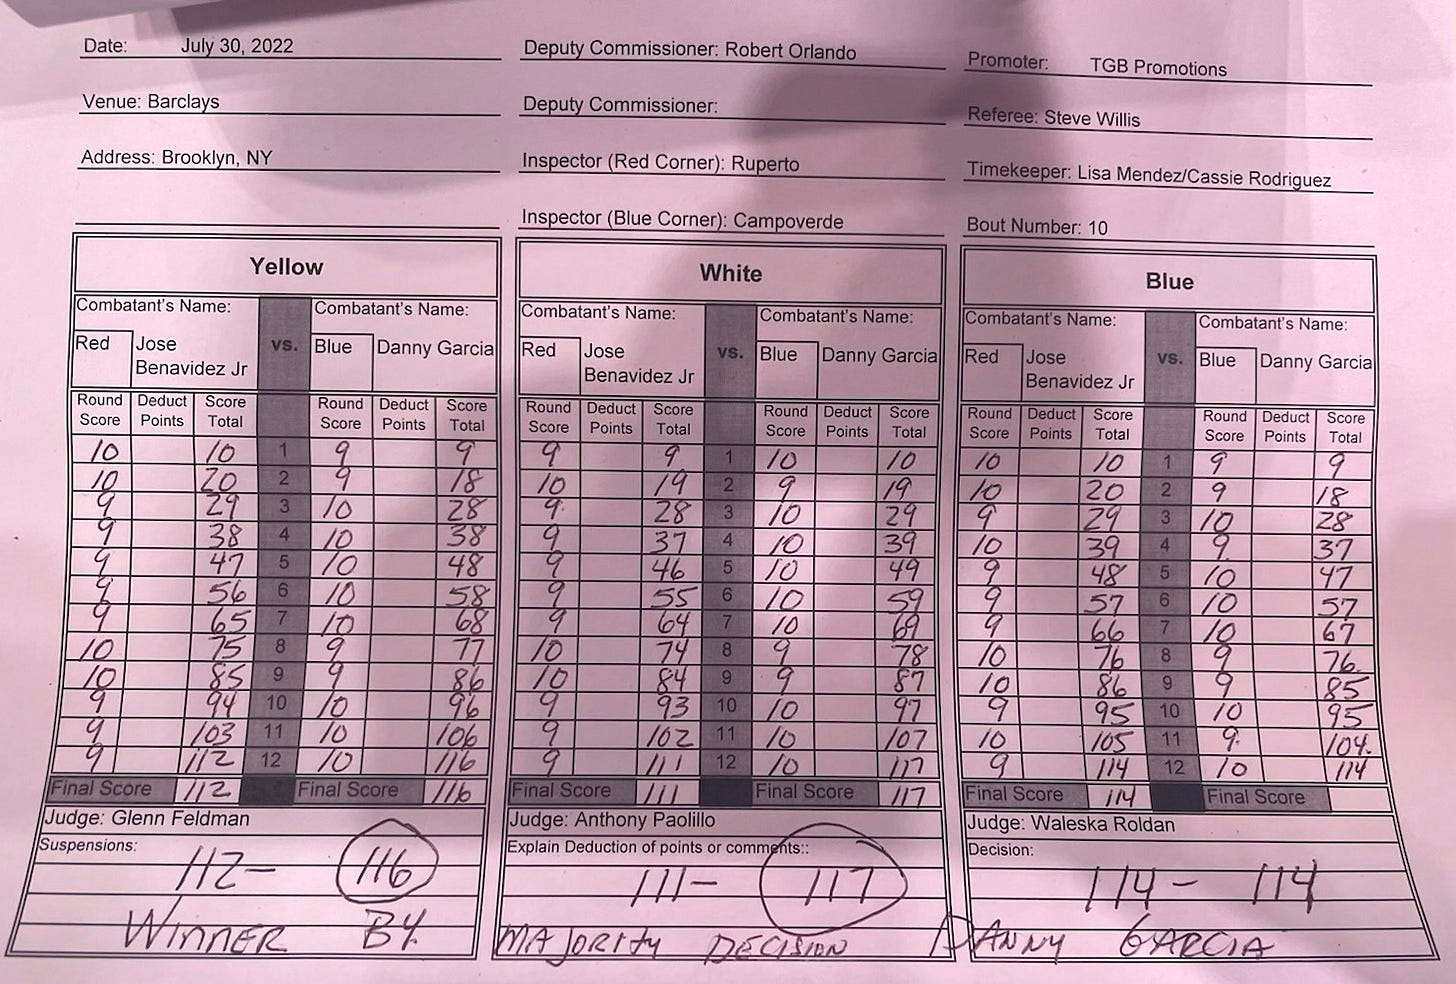 Date: July 30, 2022 Deputy Commissioner: Robert Orlando Promoter: TGB Promotions
Venue: Barclays Deputy Commissioner: Referee: Steve Willis
Address: Brooklyn, NY Inspector (Red Corner): Ruperto Timekeeper: Lisa Mendez/Cassie Rodriguez
Inspector (Blue Corner): Campoverde Bout Number: 10
Yellow White Blue
Combatant's Name: Combatant's Name: Combatant's Name: Combatant's Name: Combatant's Name: Combatant's Name:
Red Jose Benavidez Jr vs. Blue Danny Garcia Red Jose Benavidez Jr vs. Blue Danny Garcia Red Jose Benavidez Jr vs. Blue Danny Garcia
Round Score Deduct Points Score Total Round Score Deduct Points Score Total Round Score Deduct Points Score Total Round Score Deduct Points Score Total Round Score Deduct Points Score Total Round Score Deduct Points Score Total
10 10 1 9 9 9 9 1 10 10 10 10 1 9 9
10 20 2 9 18 10 19 2 9 19 10 20 2 9 18
9 29 3 10 28 9 28 3 10 29 9 29 3 10 28
9 38 4 10 38 9 37 4 10 39 10 39 4 9 37
9 47 5 10 48 9 46 5 10 49 9 48 5 10 47
9 56 6 10 58 9 55 6 10 59 9 57 6 10 57
9 65 7 10 68 9 64 7 10 69 9 66 7 10 67
10 75 8 9 77 10 74 8 9 78 10 76 8 9 76
10 85 9 9 86 10 84 9 9 87 10 86 9 9 85
9 94 10 10 96 9 93 10 10 97 9 95 10 10 95
9 103 11 10 106 9 102 11 10 107 10 105 11 9 104
9 112 12 10 116 9 111 12 10 117 9 114 12 10 114
Final Score 112 Final Score 116 Final Score 111 Final Score 117 Final Score 114 Final Score
Judge: Glenn Feldman Judge: Anthony Paolillo Judge: Waleska Roldan
Suspensions: Explain Deduction of points or comments:: Decision:
112- 116 111- 117 114- 114
WINNER BY MAJORITY DECISION DANNY GARCIA